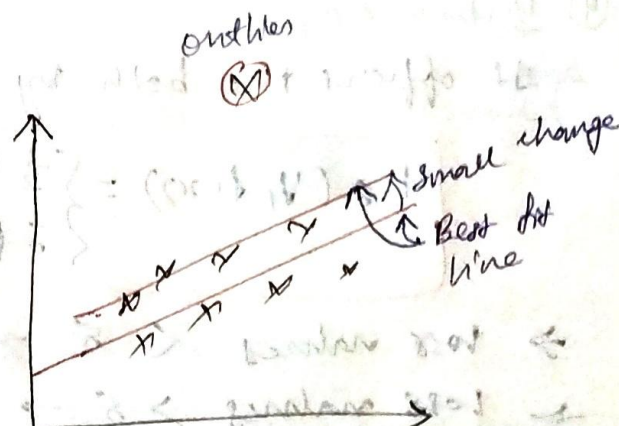 outlies
small change
Best fit
line